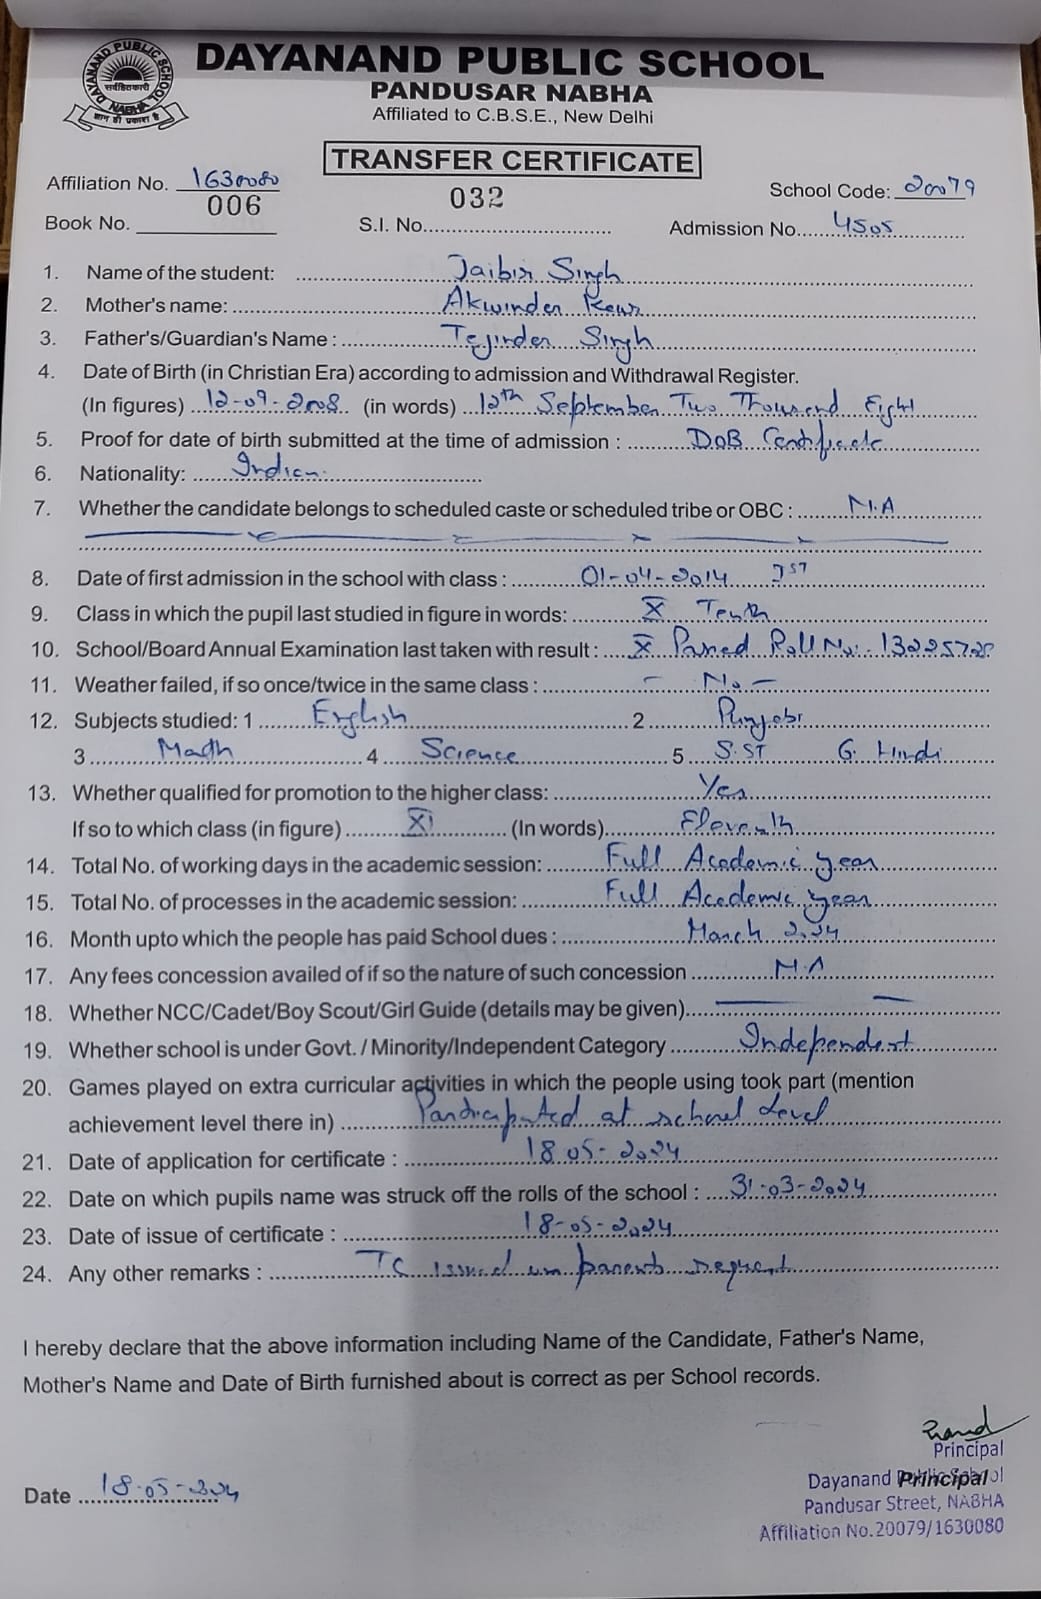 DAYANAND PUBLIC SCHOOL
PANDUSAR NABHA
Affiliated to C.B.S.E., New Delhi
DAYANAND PUBLIC SCHOOL
सर्वहितकारी
NABHA
ज्ञान ही प्रकाश है
TRANSFER CERTIFICATE
Affiliation No. 1630080
School Code: 20079
Book No. 006
S.I. No. 032
Admission No. 4505
1. Name of the student: Jaibir Singh
2. Mother's name: Akwinder Kaur
3. Father's/Guardian's Name : Tejinder Singh
4. Date of Birth (in Christian Era) according to admission and Withdrawal Register.
(In figures) 12-09-2008 (in words) 12th September Two Thousand Eight
5. Proof for date of birth submitted at the time of admission : DOB Certificate
6. Nationality: Indian
7. Whether the candidate belongs to scheduled caste or scheduled tribe or OBC : N.A
8. Date of first admission in the school with class : 01-04-2014 IST
9. Class in which the pupil last studied in figure in words: X Tenth
10. School/Board Annual Examination last taken with result : X Passed Roll No.
11. Weather failed, if so once/twice in the same class : - No -
12. Subjects studied: 1 English 2 Punjabi
3 Math 4 Science 5 S.ST 6. Hindi
13. Whether qualified for promotion to the higher class: Yes
If so to which class (in figure) XI (In words) Eleventh
14. Total No. of working days in the academic session: Full Academic year
15. Total No. of processes in the academic session: Full Academic year
16. Month upto which the people has paid School dues : March 2024
17. Any fees concession availed of if so the nature of such concession N.A
18. Whether NCC/Cadet/Boy Scout/Girl Guide (details may be given)
19. Whether school is under Govt. / Minority/Independent Category Independent
20. Games played on extra curricular activities in which the people using took part (mention
achievement level there in) Participated at school Level
21. Date of application for certificate : 18-05-2024
22. Date on which pupils name was struck off the rolls of the school : 31-03-2024
23. Date of issue of certificate : 18-05-2024
24. Any other remarks : TC issued on parents request
I hereby declare that the above information including Name of the Candidate, Father's Name,
Mother's Name and Date of Birth furnished about is correct as per School records.
Principal
Dayanand Public School
Principal
Pandusar Street, NABHA
Affiliation No.20079/1630080
Date 18-05-2024